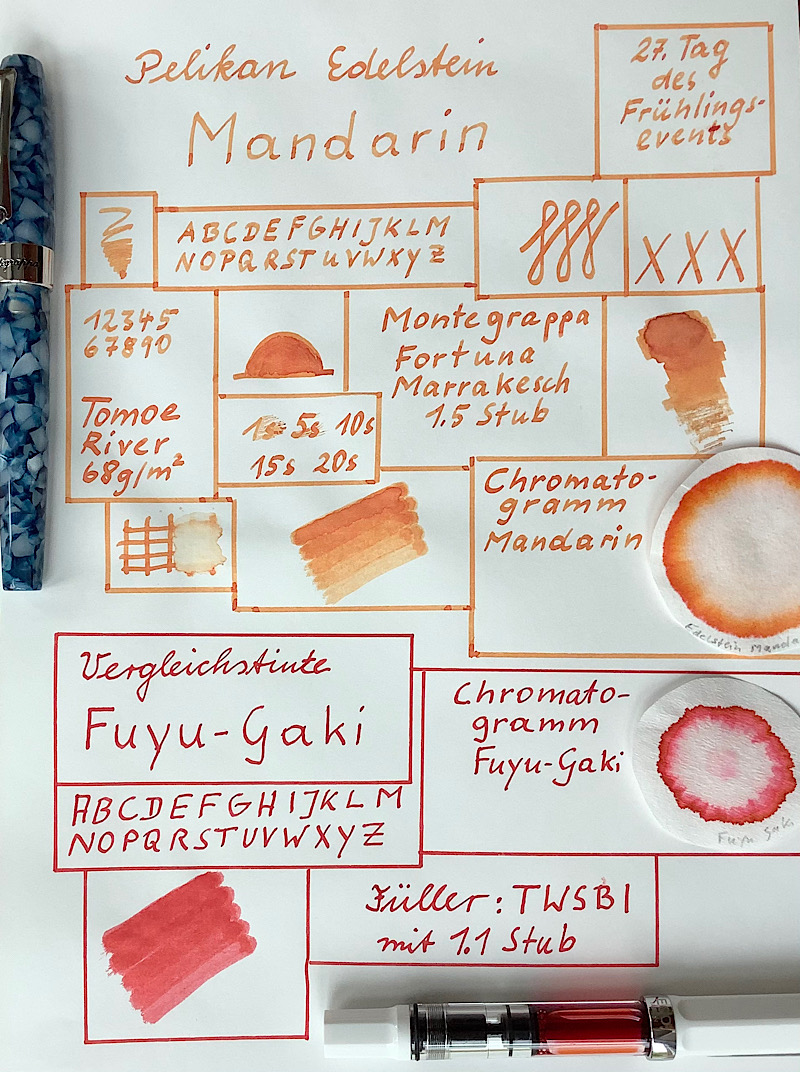 Pelikan Edelstein
Mandarin
27. Tag
des
Frühlings-
events
ABCDEFGHIJKLM
NOPQRSTUVWXYZ
XXX
12345
67890
Tomoe
River
68g/m²
1s 5s 10s
15s 20s
Montegrappa
Fortuna
Marrakesch
1.5 Stub
Chromato-
gramm
Mandarin
Edelstein Manda
Vergleichstinte
Fuyu-Gaki
ABCDEFGHIJKLM
NOPQRSTUVWXYZ
Chromato-
gramm
Fuyu-Gaki
Fuyu Gaki
Füller: TWSBI
mit 1.1 Stub